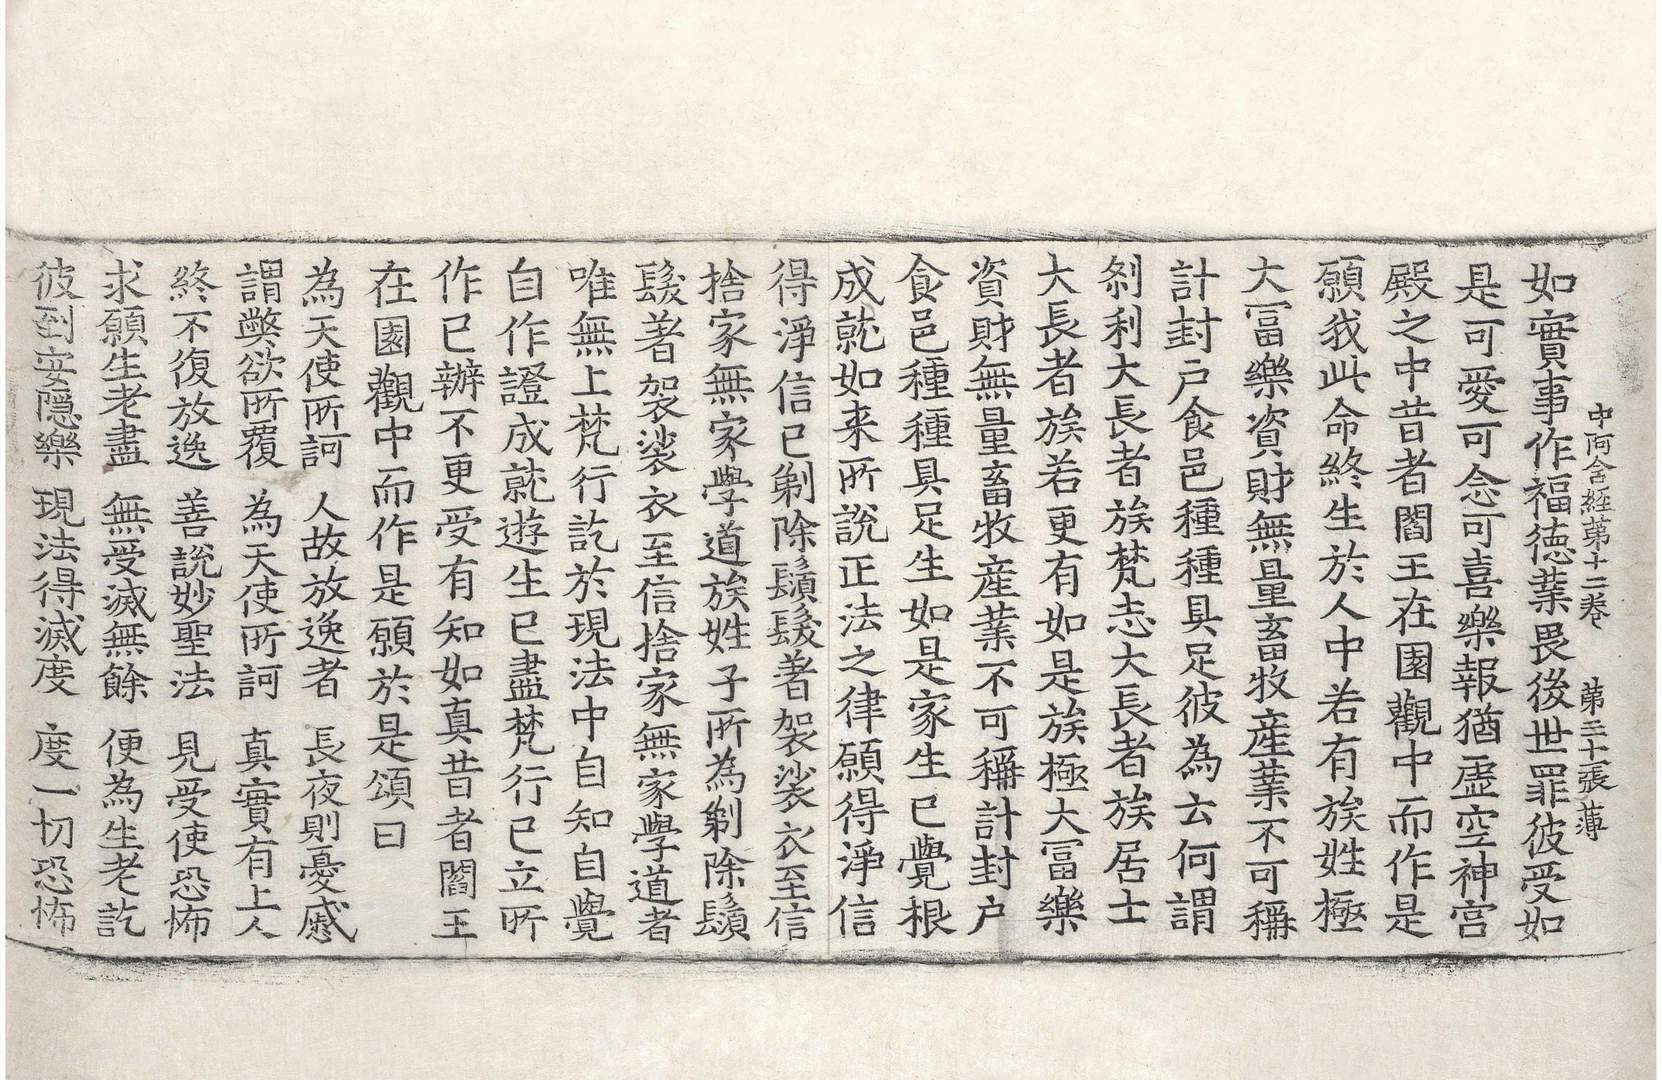 中阿含經第十二卷　第三十張　薄
如實事作福德業畏後世罪彼受如
是可愛可念可喜樂報猶虛空神宮
殿之中昔者閻王在園觀中而作是
願我此命終生於人中若有族姓極
大冨樂資財無量畜牧産業不可稱
計封戶食邑種種具足彼為云何謂
刹利大長者族梵志大長者族居士
大長者族若更有如是族極大冨樂
資財無量畜牧産業不可稱計封户
食邑種種具足生如是家生已覺根
成就如来所說正法之律願得淨信
得淨信已剃除鬚髮著袈裟衣至信
捨家無家學道族姓子所為剃除鬚
髮著袈裟衣至信捨家無家學道者
唯無上梵行訖於現法中自知自覺
自作證成就遊生已盡梵行已立所
作已辦不更受有知如真昔者閻王
在園觀中而作是願於是頌曰
為天使所訶　人故放逸者　長夜則憂慼
謂弊欲所覆　為天使所訶　真實有上人
終不復放逸　善說妙聖法　見受使恐怖
求願生老盡　無受滅無餘　便為生老訖
彼到安隱樂　現法得滅度　度一切恐怖